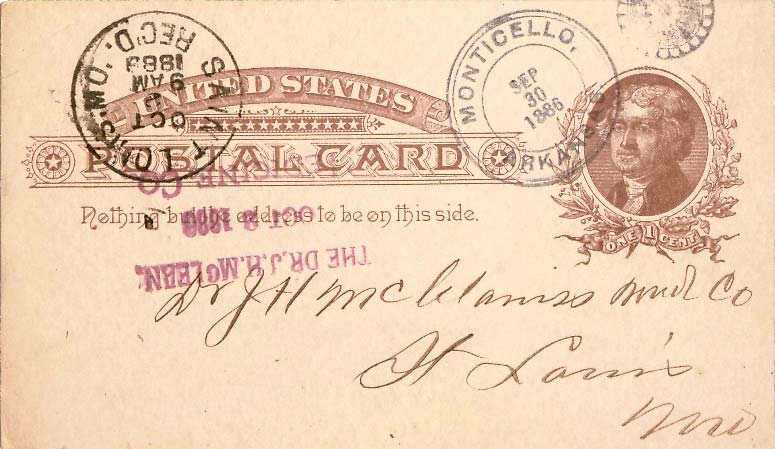 MONTICELLO,
SEP
30
1886
ARKANSAS
SAINT LOUIS MO.
OCT
9 AM
1886
REC'D.
UNITED STATES
POSTAL CARD
Nothing but the address to be on this side.
ONE 1 CENT
THE DR. J. H. McLEAN,
OCT 1886
MEDICINE CO
Dr J H Co
St Louis